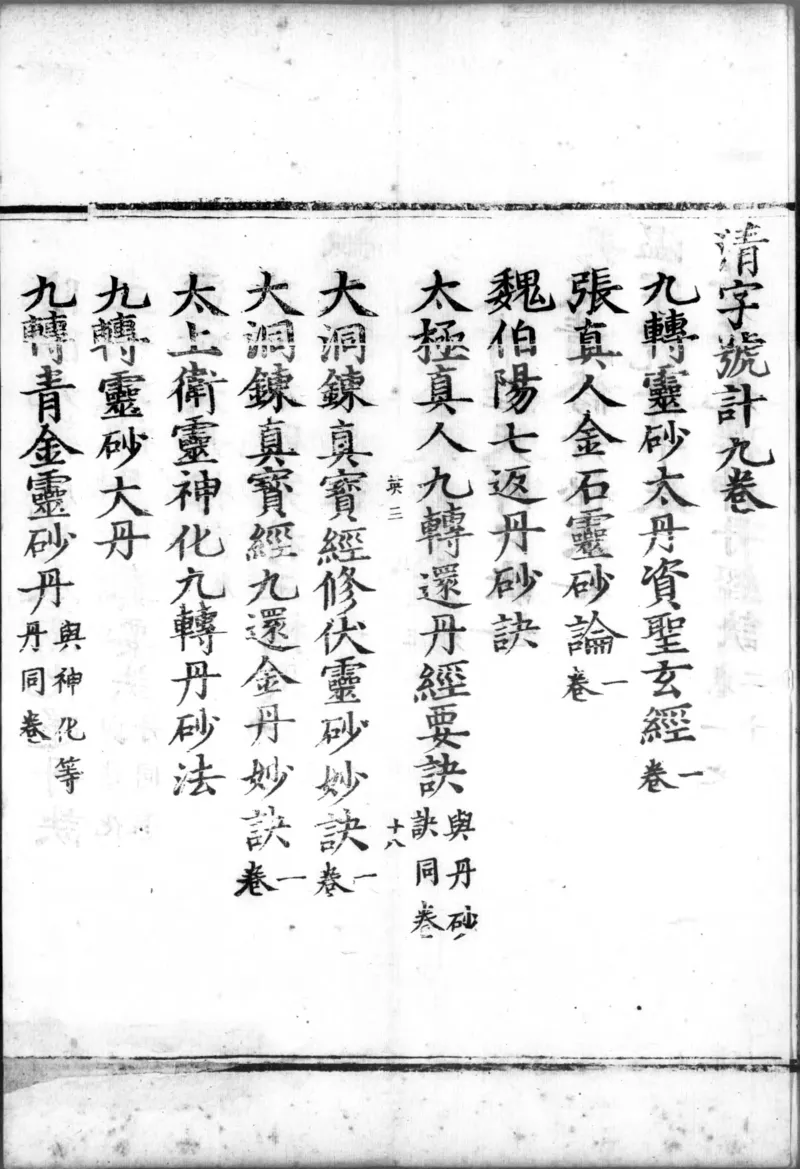 清字號計九卷
九轉靈砂大丹資聖玄經一卷
張真人金石靈砂論一卷
魏伯陽七返丹砂訣
太極真人九轉還丹經要訣與丹砂訣同卷
英三 十八
大洞鍊真寶經修伏靈砂妙訣一卷
大洞鍊真寶經九還金丹妙訣一卷
太上衛靈神化九轉丹砂法
九轉靈砂大丹
九轉青金靈砂丹與神化等丹同卷